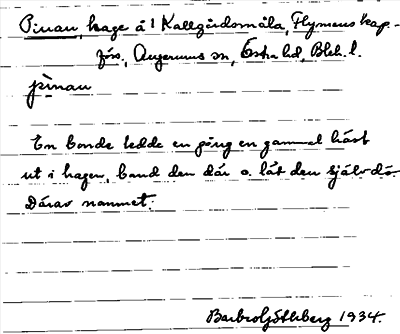 Pinan, hage å 1 Kallgårdsmåla, Flymens kap-
förs., Augerums sn, Östra hd, Blek. l.
pìnan
En bonde ledde en gång en gammal häst
ut i hagen, band den där o. lät den självdö.
Därav namnet.
Barbro Göthberg 1934.